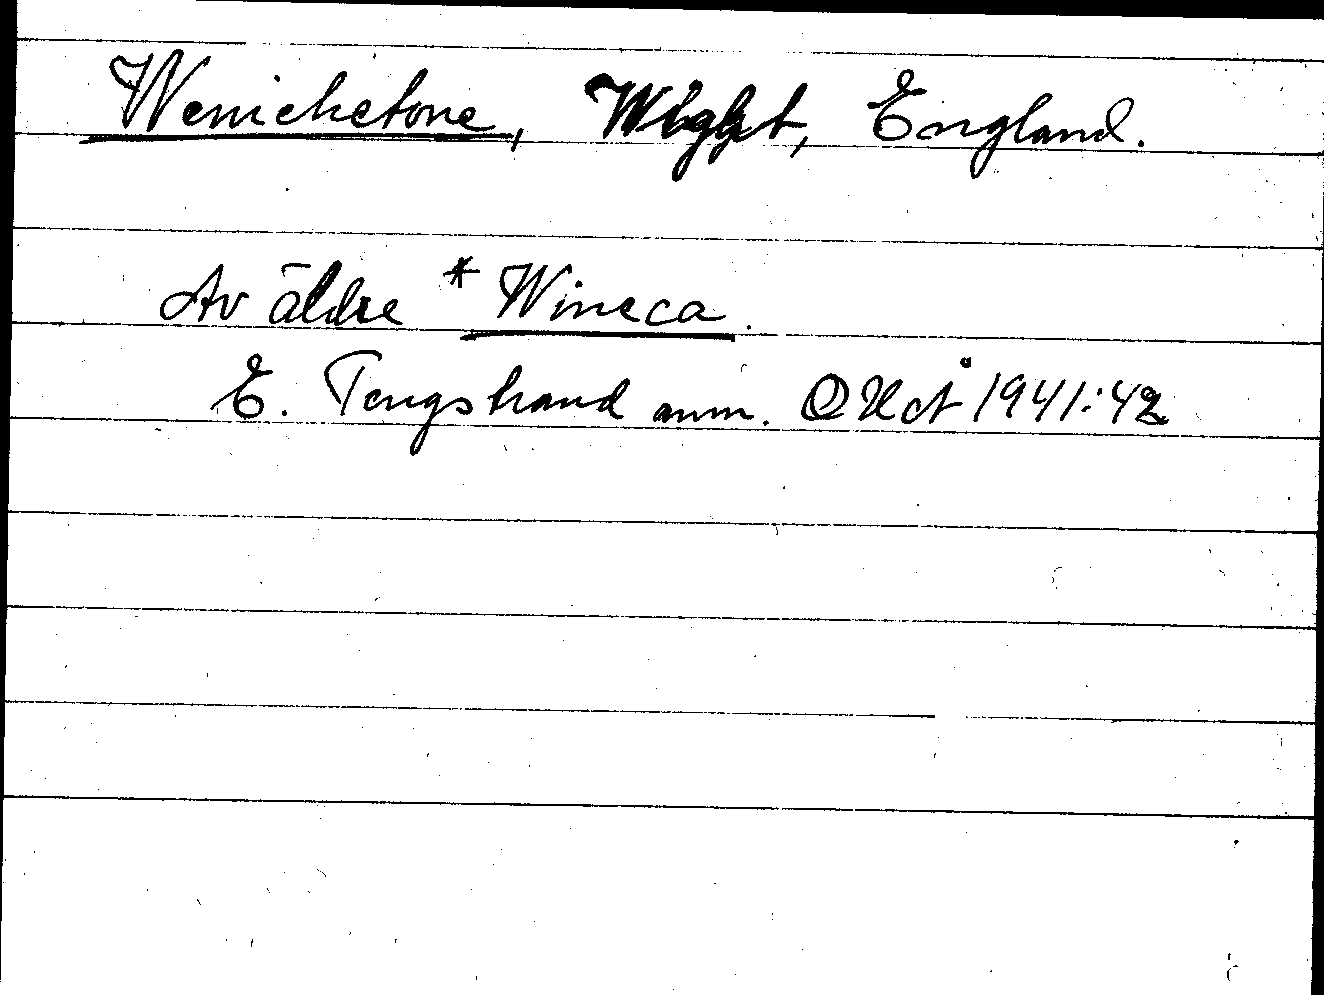 Wenichetone, Wight, England.
Av äldre * Wineca.
E. Tengstrand anm. 1941:42